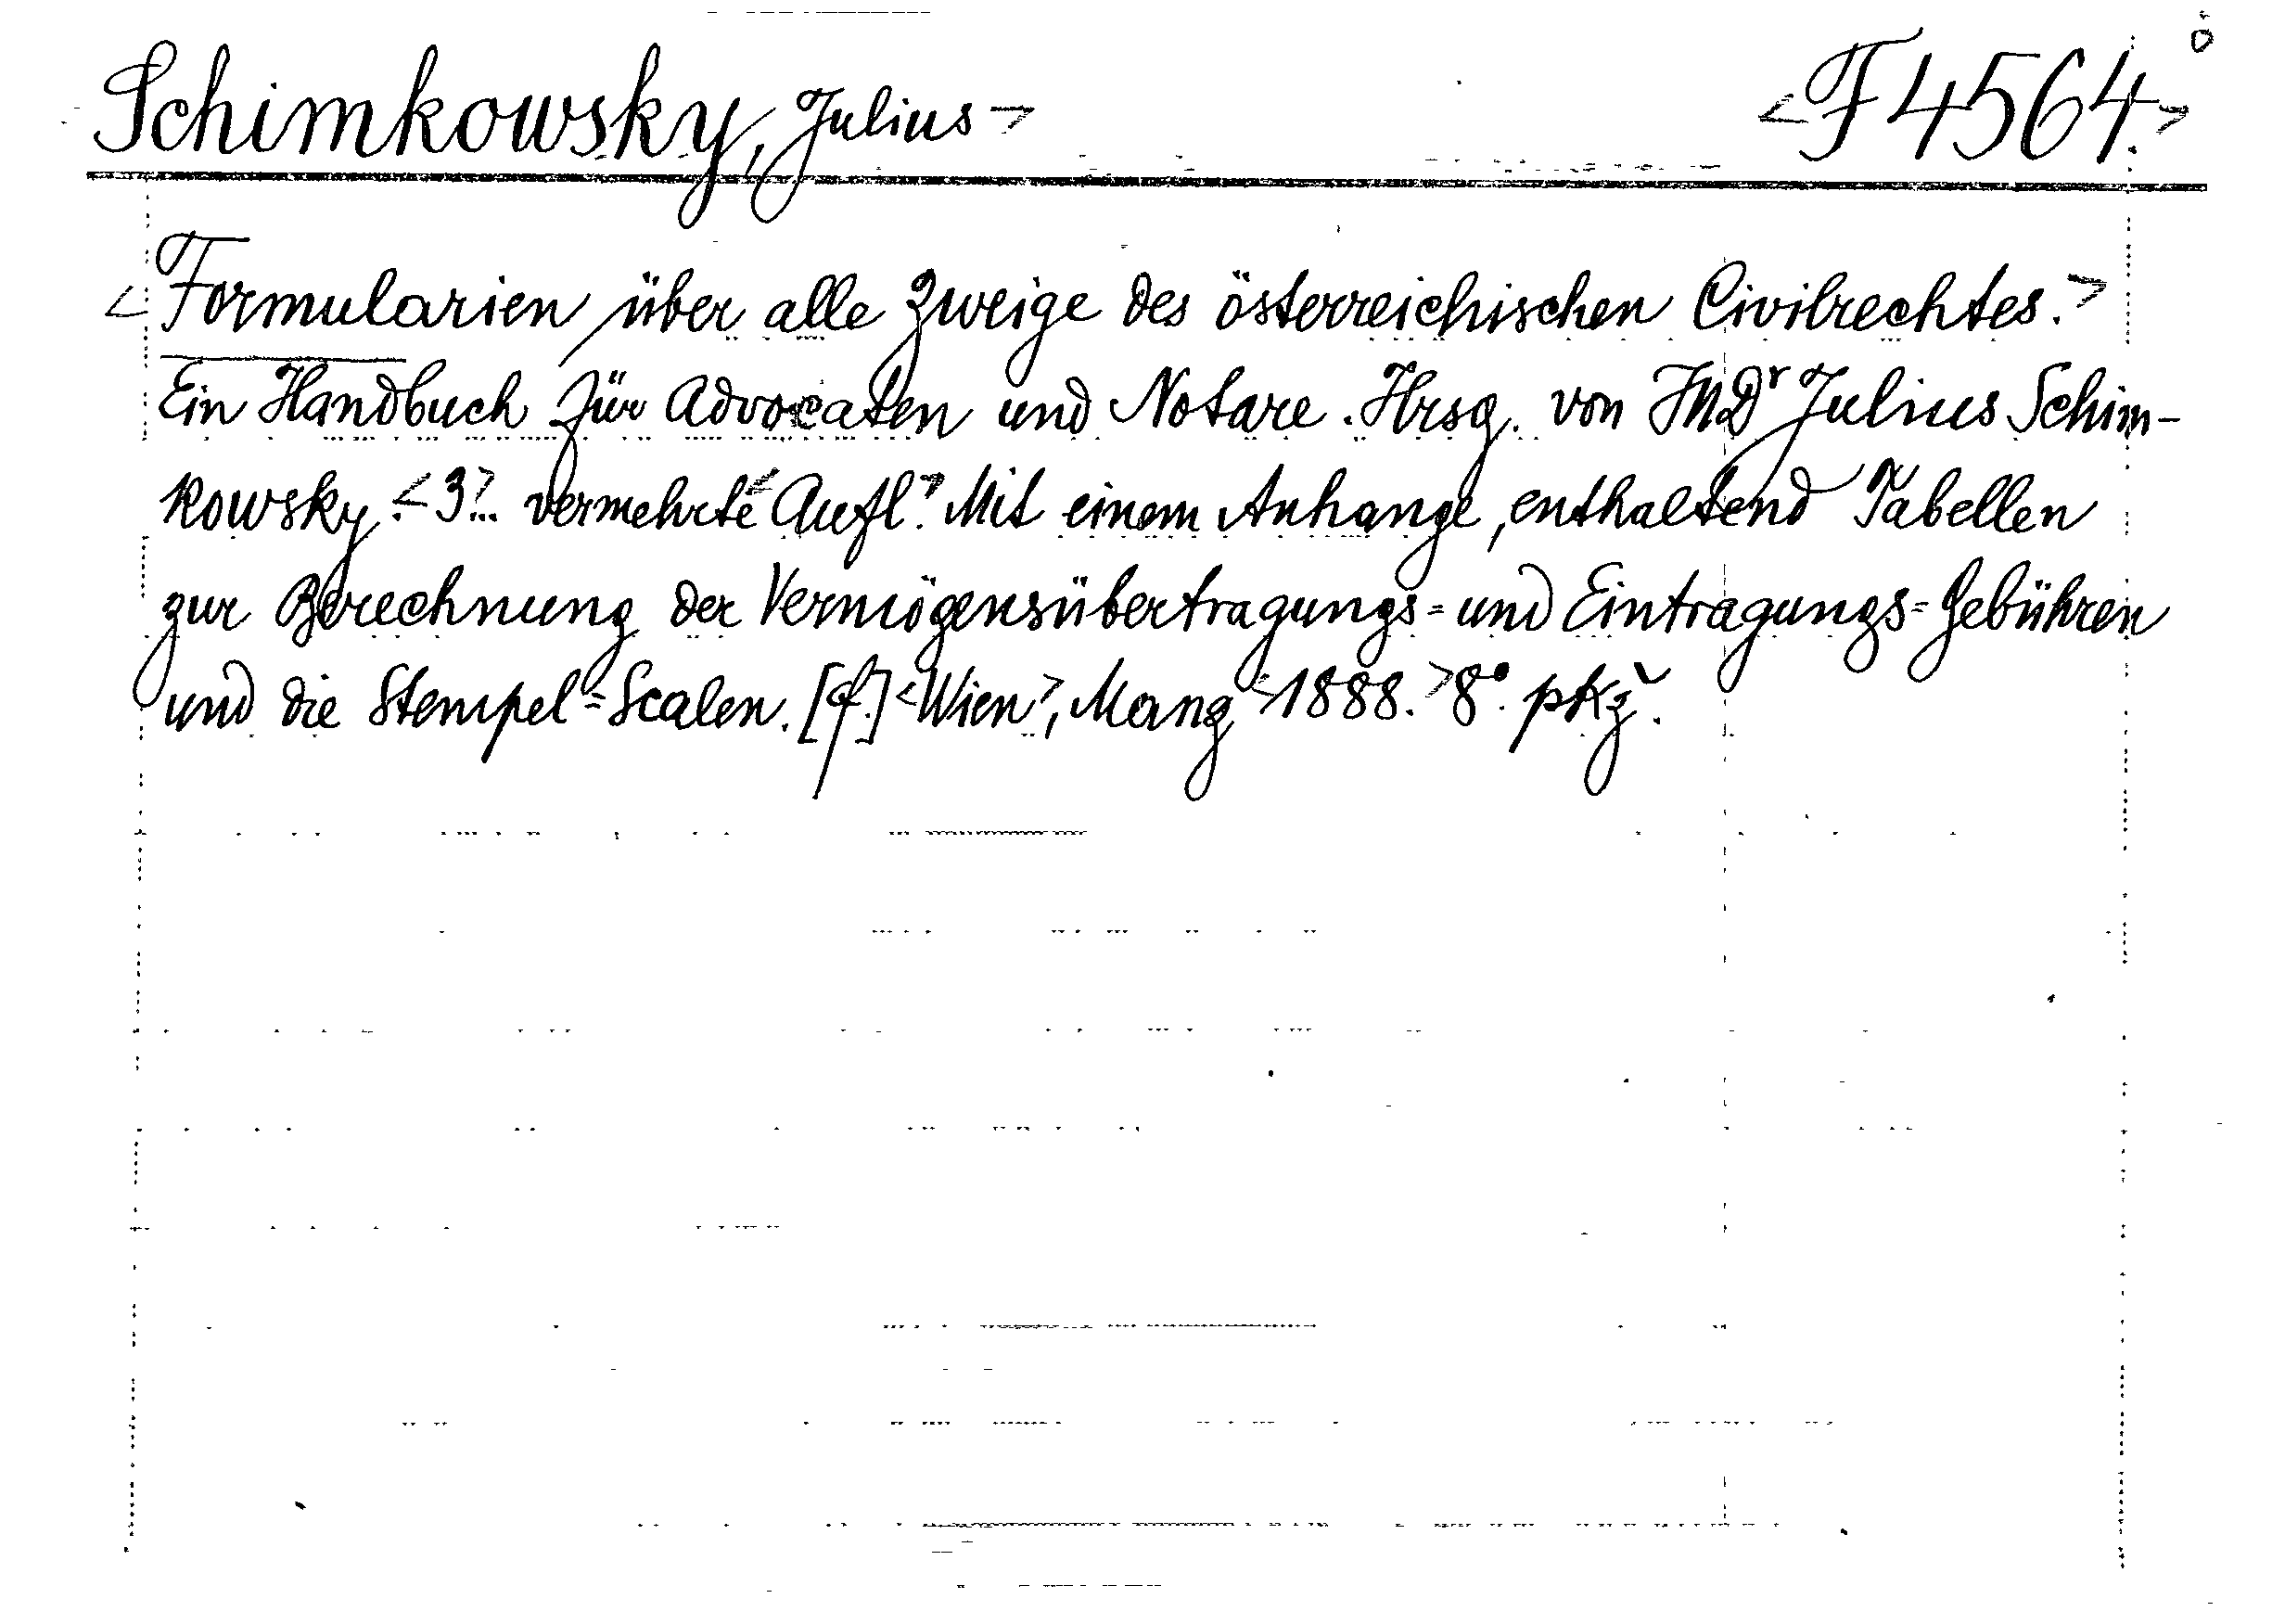 Schimkowsky, Julius> <F 4564.>
<Formularien über alle Zweige des österreichischen Civilrechtes.>
Ein Handbuch für Advocaten und Notare. Hrsg. von JUDr Julius Schim-
kowsky. <3.> vermehrte <Aufl.> Mit einem Anhange, enthaltend Tabellen
zur Berechnung der Vermögensübertragungs- und Eintragungs-Gebühren
und die Stempel-Scalen. [f.] <Wien>, Manz <1888.> 8°. pKž.